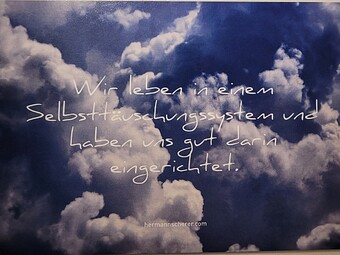 Wir leben in einem
Selbsttäuschungssystem und
haben uns gut darin
eingerichtet.
hermannscherer.com